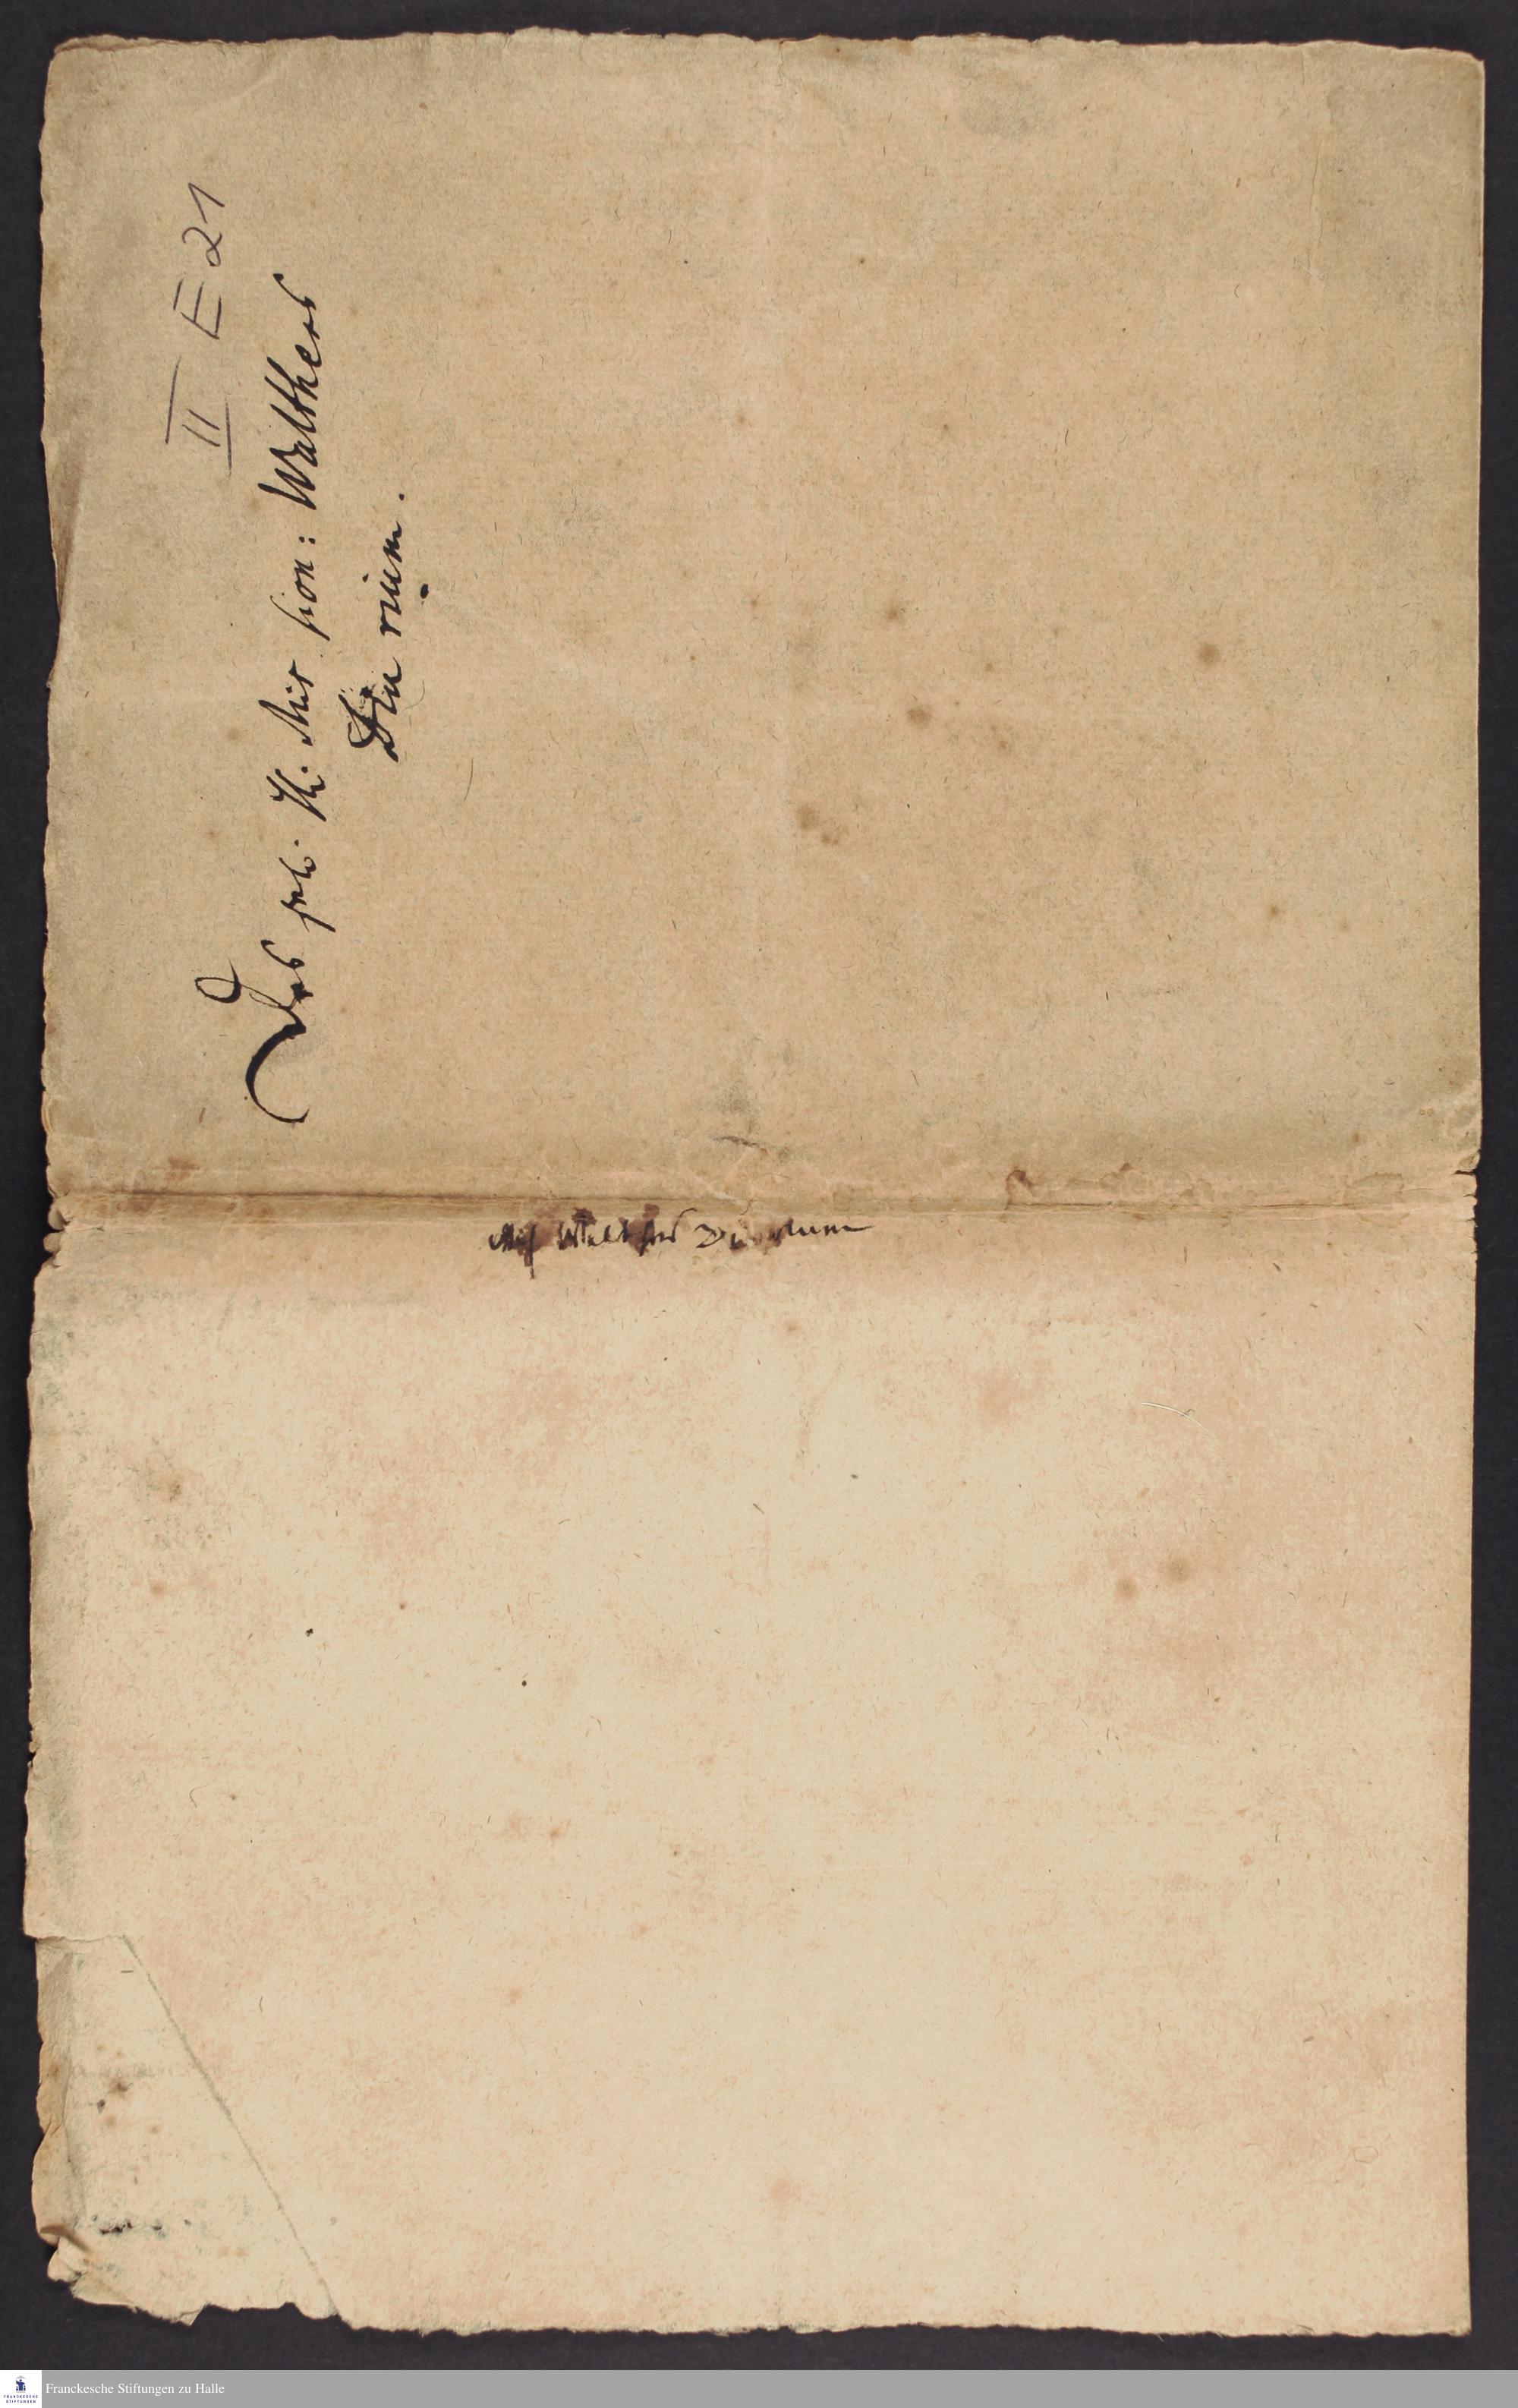 II E 21
Des sel. H. Mission: Walthers
Diarium.
Miss Walthers Diarium
Franckesche Stiftungen zu Halle
FRANCKESCHE
STIFTUNGEN